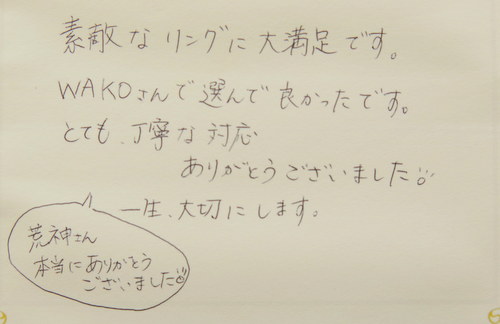 素敵なリングに大満足です。
WAKOさんで選んで良かったです。
とても、丁寧な対応
ありがとうございました
一生、大切にします。
荒神さん
本当にありがとう
ございました